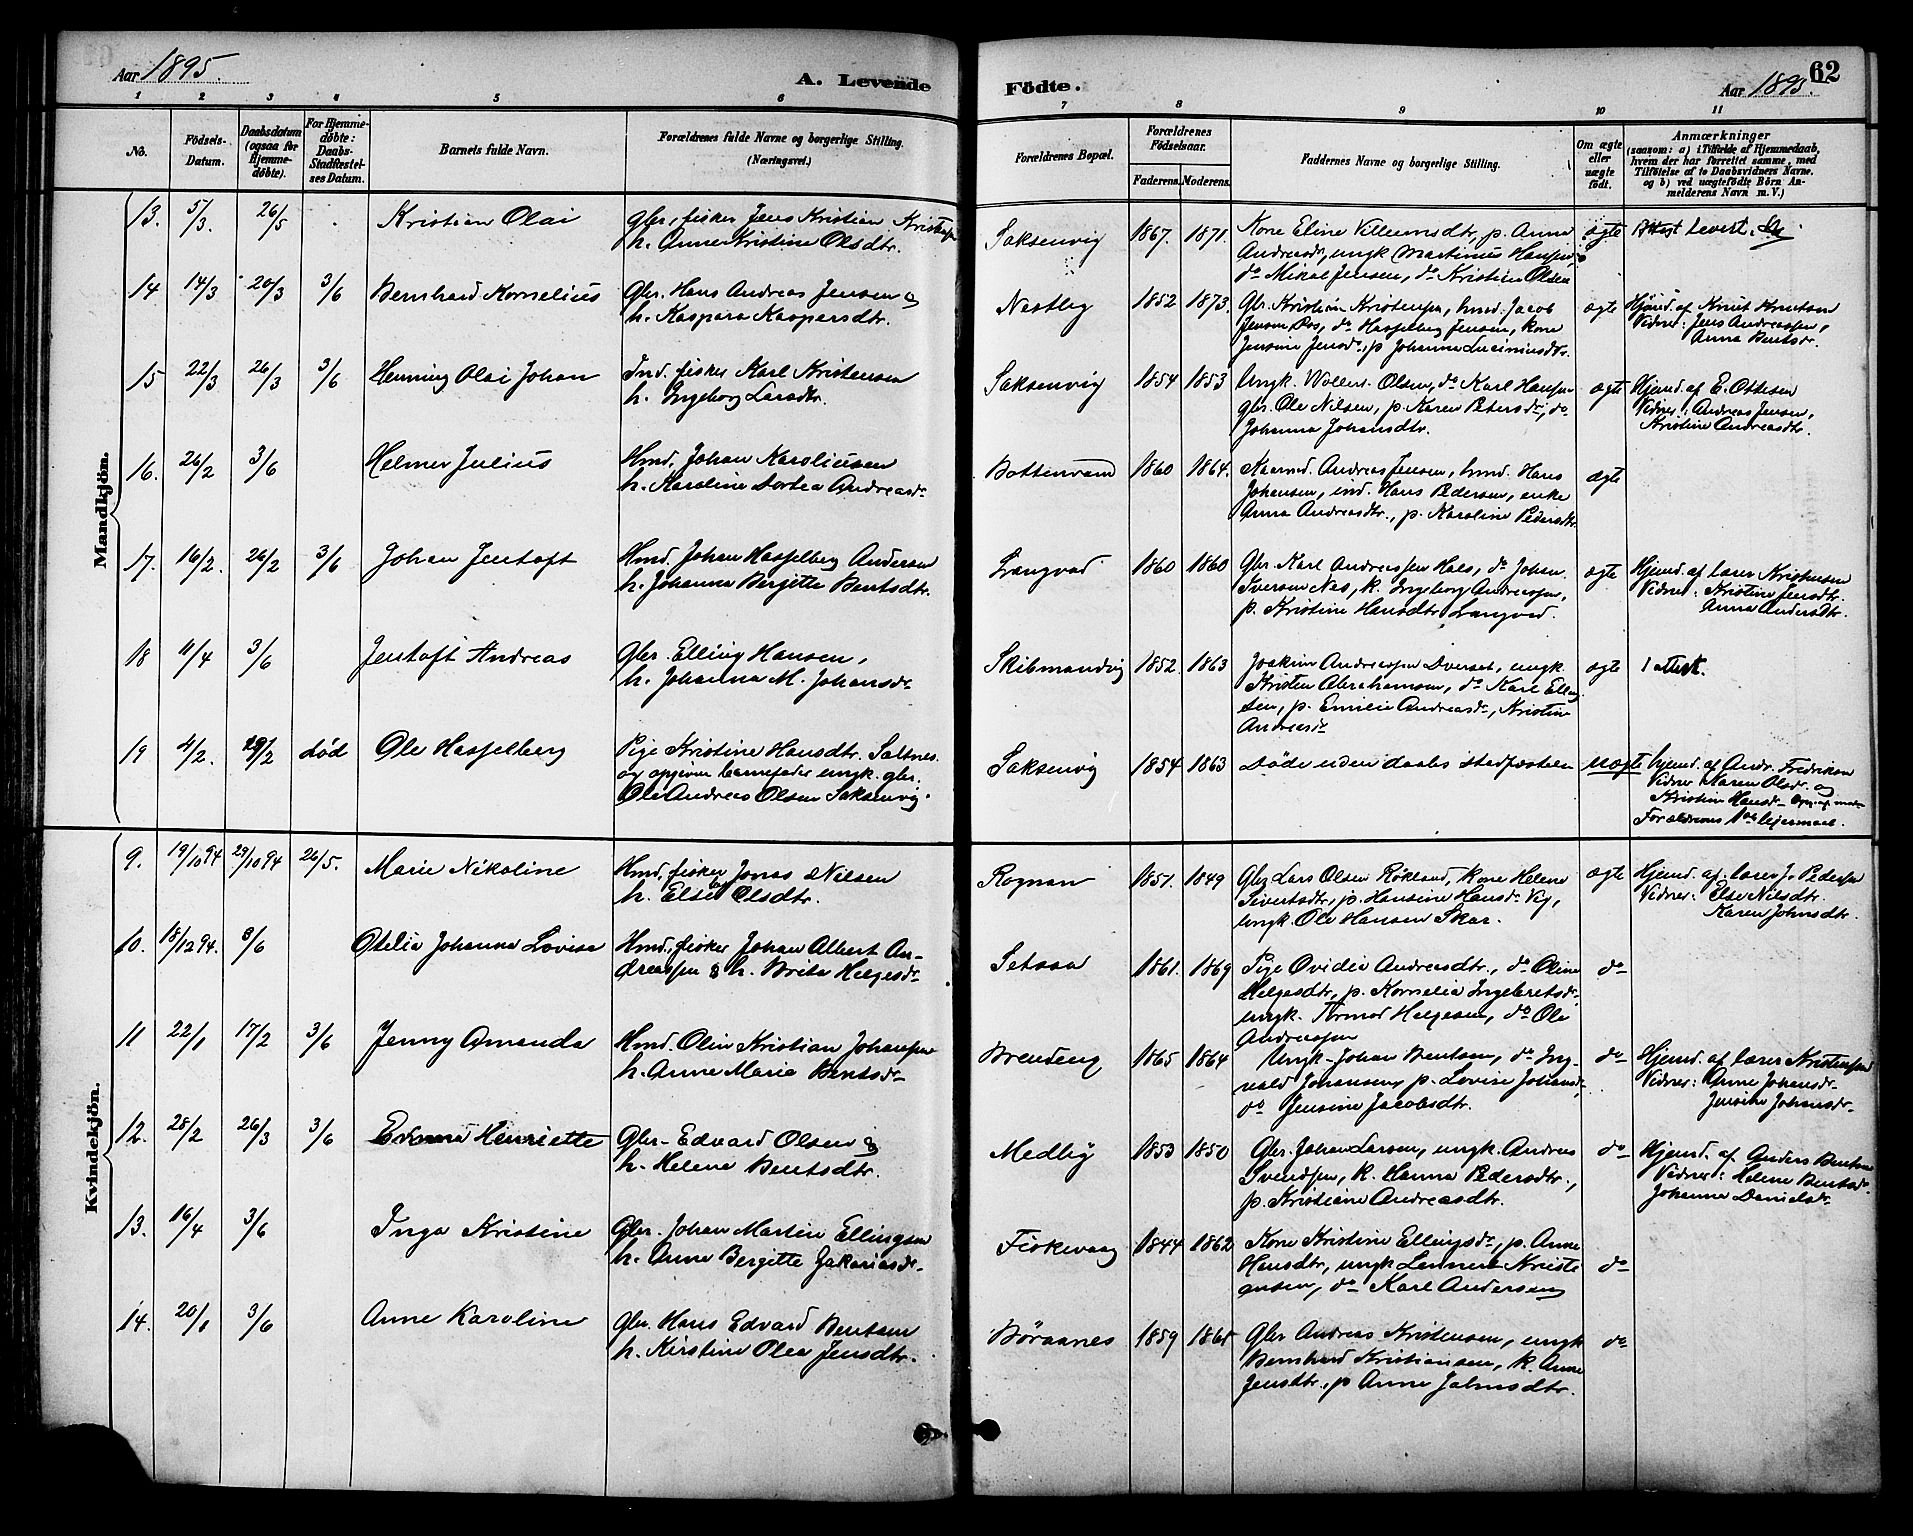 Aar 1895.
A. Levende
Födte.
62
Aar 1895.
1 2 3 4 5 6 7 8 9 10 11
No.
Födsels-Datum.
Daabsdatum (ogsaa for Hjemme-døbte).
For Hjemme-døbte: Daabs-Stadfæstel-ses Datum.
Barnets fulde Navn.
Forældrenes fulde Navne og borgerlige Stilling. (Næringsvei.)
Forældrenes Bopæl.
Forældrenes Födselsaar.
Faderens. Moderens.
Faddernes Navne og borgerlige Stilling.
Om ægte eller uægte födt.
Anmærkninger
(saasom: a) i Tilfælde af Hjemmedaab,
hvem der har forrettet samme, med
Tilföielse af to Daabsvidners Navne.
og b) ved uægtefödte Börn An-
melderens Navn m. V.)
Mandkjön.
13. 5/3. 26/5 Kristian Olai
gbr., fisker Jens Kristian
h. Anne Kristine Olsdtr.
Saksenvig 1867. 1871.
Kone Eline Villumsdtr, p. Anna
Andreasdr, ungk Martinus Hansen,
do Mikal Jensen, do Kristine Olsen
ægte
14 14/3 20/3 3/6 Bernhard Kornelius
Gbr. Hans Andreas Jensen &
h. Kaspara Kaspersdtr.
Nestby 1852 1873.
Gbr. Kristian Kristensen, hmd. Jacob
Jensen Ros, do Hasselberg Jensen, kone
Jensine Jensdr., p Johanna
ægte
Hjemd. af Knut Knutsen
Vidner: Jens Andreassen,
Anna Bentsdr.
15 22/3 26/3 3/6 Henning Olai Johan
Ind. fisker Karl Kristensen
h. Ingeborg Larsdtr.
Saksenvig 1854 1853
Ungk. Wollert Olsen, do Karl Hansen
gbr. Ole Nilsen, p. Karen Petersdr, do
Johanna Johansdtr.
ægte
Hjemd. af E. Ottesen
Vidner: Andreas Jensen,
Kristine Andreasdtr.
16. 26/2 3/6 Helmer Julius
Hmd. Johan Karoliusen
h. Karoline Dortea Andreasdr
Bottenvand 1860 1864.
Andreas Jensen, hmd. Hans
Johansen, ind. Hans Pedersen, enke
Anna Andreasdtr., p. Karoline Pedersdtr.
ægte
17. 16/2. 26/2 3/6 Johan Jentoft
Hmd. Johan Hasselberg Andersen
h. Johanna Bergitte Bentsdtr.
Langvad 1860 1860
Gbr. Karl Andreassen Hals, do Johan
Iversen Nes, k. Ingeborg Andreassen,
p. Kristine Hansdtr. Langvad.
ægte
Hjemd. af lærer Kristensen
Vidner: Kristine Jensdtr.
Anna Andersdtr.
18 11/4 3/6 Jentoft Andreas
Gbr. Elling Hansen,
h. Johanna M. Johansdr
Skibmandvig 1852. 1863
Joakim Andreassen Dverset, ungk.
Kristen Abrahamsen, do Karl Elling
sen, p. Emilie Andreasdr, Kristine
Andreasdr
ægte
1 attest.
19 4/2. død Ole Hasselberg
Pige Kristine Hansdtr. Saltnes
og opgiven barnefader ungk. gbr.
Ole Andreas Olsen Saksenvig.
Saksenvig 1854 1863
Døde uden daabs stadfæstelse
uægte
hjemd. af Andr. Fredriksen
Vidner Karen Olsdr. og
Kristine Hansdr
Forældrenes 1ste leiermaal.
Kvindekjön.
9. 19/10 94 29/10 94 26/5. Marie Nikoline
Hmd. fisker Jonas Nilsen
h. Else Olsdtr.
Rognan 1851. 1849
Gbr Lars Olsen Røkland, kone Helene
Sivertsdtr., p. Hansine Hansdr Vig,
Ungk. Ole Hansen Skar.
ægte
Hjemd. af lærer J. Pedersen
Vidner: Else Nilsdtr.
Karen Johnsdtr.
10. 18/12 94. 3/6 Otelie Johanna Lovise
Hmd., fisker Johan Albert An-
dreassen & h. Brita Helgesdr
Setsaa 1861. 1869
Pige Ovidia Andreasdtr., do Oline
Helgesdtr, p. Kornelia Ingebretsdr
ungk. Tormod Helgesen, do Ole
Andreassen
do
11 22/1 17/2 3/6 Jenny Amanda
Hmd. Olin Kristian Johansen
h. Anne Marie Bentsdr
Brendeng 1865 1864
Ungk. Johan Bentsen, do Ing
vald Johansen, p. Lovise Johansdr,
do Jensine Jacobsdtr.
do
Hjemd. af lærer Kristensen
Vidner: Anne Johansdr
Jensine Johansdr
12. 28/2 26/3 3/6 Henriette
Gbr. Edvard Olsen &
h. Helene Bentsdtr.
Medby 1853 1850
Gbr. Johan Larsen, ungk. Andreas
Svendsen, k. Hanna Pedersdtr.,
p. Kristiane Andreasdtr.
do
Hjemd. af Anders Bentsen
Vidner: Helene Bentsdr.
Johanna Danielsdr
13. 16/4 3/6 Inga Kristine
Gbr. Johan Martin Ellingsen
h. Anne Bergitte Zakariasdr
Fiskevaag 1844 1862
Kone Kristine Ellingsdr, p. Anne
Hansdtr, ungk Kriste
ensen, do Karl Andersen
do
14. 20/1 3/6 Anne Karoline
Gbr. Hans Edvard Bentsen
h. Kirstine Olea Jensdtr.
Børaanes 1859 1865
Gbr Andreas Kristensen, ungk
Bernhard Kristiansen, k. Anne
Jensdtr., p Anne Johnsdtr.
do